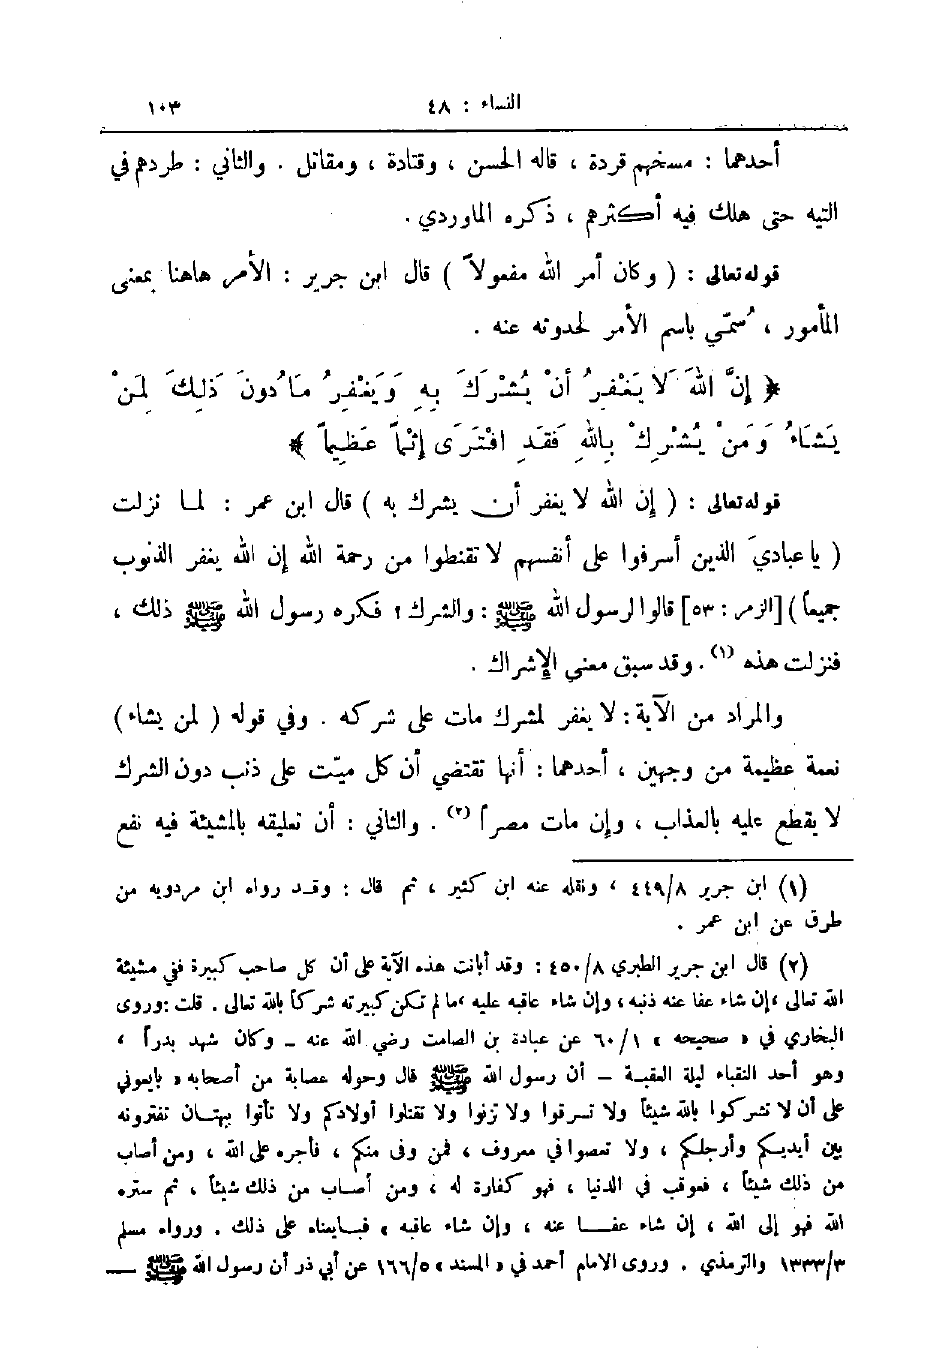 النساء : ٤٨ ١٠٣
أحدهما : مسخهم قردة ، قاله الحسن ، وقتادة ، ومقاتل . والثاني : طردهم في
التيه حتى هلك فيه أكثرهم ، ذكره الماوردي .
قوله تعالى : ( وكان أمر الله مفعولاً ) قال ابن جرير : الأمر هاهنا بمعنى
المأمور ، سُمّي باسم الأمر لحدوثه عنه .
﴿ إِنَّ اللهَ لَا يَغْفِرُ أَنْ يُشْرَكَ بِهِ وَيَغْفِرُ مَا دُونَ ذَلِكَ لِمَنْ
يَشَاءُ وَمَنْ يُشْرِكْ بِاللهِ فَقَدِ افْتَرَى إِثْماً عَظِيماً ﴾
قوله تعالى : ( إن الله لا يغفر أن يشرك به ) قال ابن عمر : لما نزلت
( يا عباديَ الذين أسرفوا على أنفسهم لا تقنطوا من رحمة الله إن الله يغفر الذنوب
جميعاً ) [الزمر : ٥٣] قالوا لرسول الله ﷺ : والشرك ؟ فكره رسول الله ﷺ ذلك ،
فنزلت هذه (١) . وقد سبق معنى الإشراك .
والمراد من الآية : لا يغفر لمشرك مات على شركه . وفي قوله ( لمن يشاء )
نعمة عظيمة من وجهين ، أحدهما : أنها تقتضي أن كل ميّت على ذنب دون الشرك
لا يقطع عليه بالعذاب ، وإن مات مصراً (٢) . والثاني : أن تعليقه بالمشيئة فيه نفع
(١) ابن جرير ٤٤٩/٨ ، ونقله عنه ابن كثير ، ثم قال : وقد رواه ابن مردويه من
طرق عن ابن عمر .
(٢) قال ابن جرير الطبري ٤٥٠/٨ : وقد أبانت هذه الآية على أن كل صاحب كبيرة ففي مشيئة
الله تعالى ، إن شاء عفا عنه ذنبه ، وإن شاء عاقبه عليه ، ما لم تكن كبيرته شركاً بالله تعالى . قلت : وروى
البخاري في « صحيحه » ٦٠/١ عن عبادة بن الصامت رضي الله عنه ـ وكان شهد بدراً ،
وهو أحد النقباء ليلة العقبة ـ أن رسول الله ﷺ قال وحوله عصابة من أصحابه « بايعوني
على أن لا تشركوا بالله شيئاً ولا تسرقوا ولا تزنوا ولا تقتلوا أولادكم ولا تأتوا ببهتان تفترونه
بين أيديكم وأرجلكم ، ولا تعصوا في معروف ، فمن وفى منكم ، فأجره على الله ، ومن أصاب
من ذلك شيئاً ، فعوقب في الدنيا ، فهو كفارة له ، ومن أصاب من ذلك شيئاً ، ثم ستره
الله فهو إلى الله ، إن شاء عفا عنه ، وإن شاء عاقبه » فبايعناه على ذلك . ورواه مسلم
١٣٣٣/٣ والترمذي . وروى الامام أحمد في « المسند » ١٦٦/٥ عن أبي ذر أن رسول الله ﷺ ـ